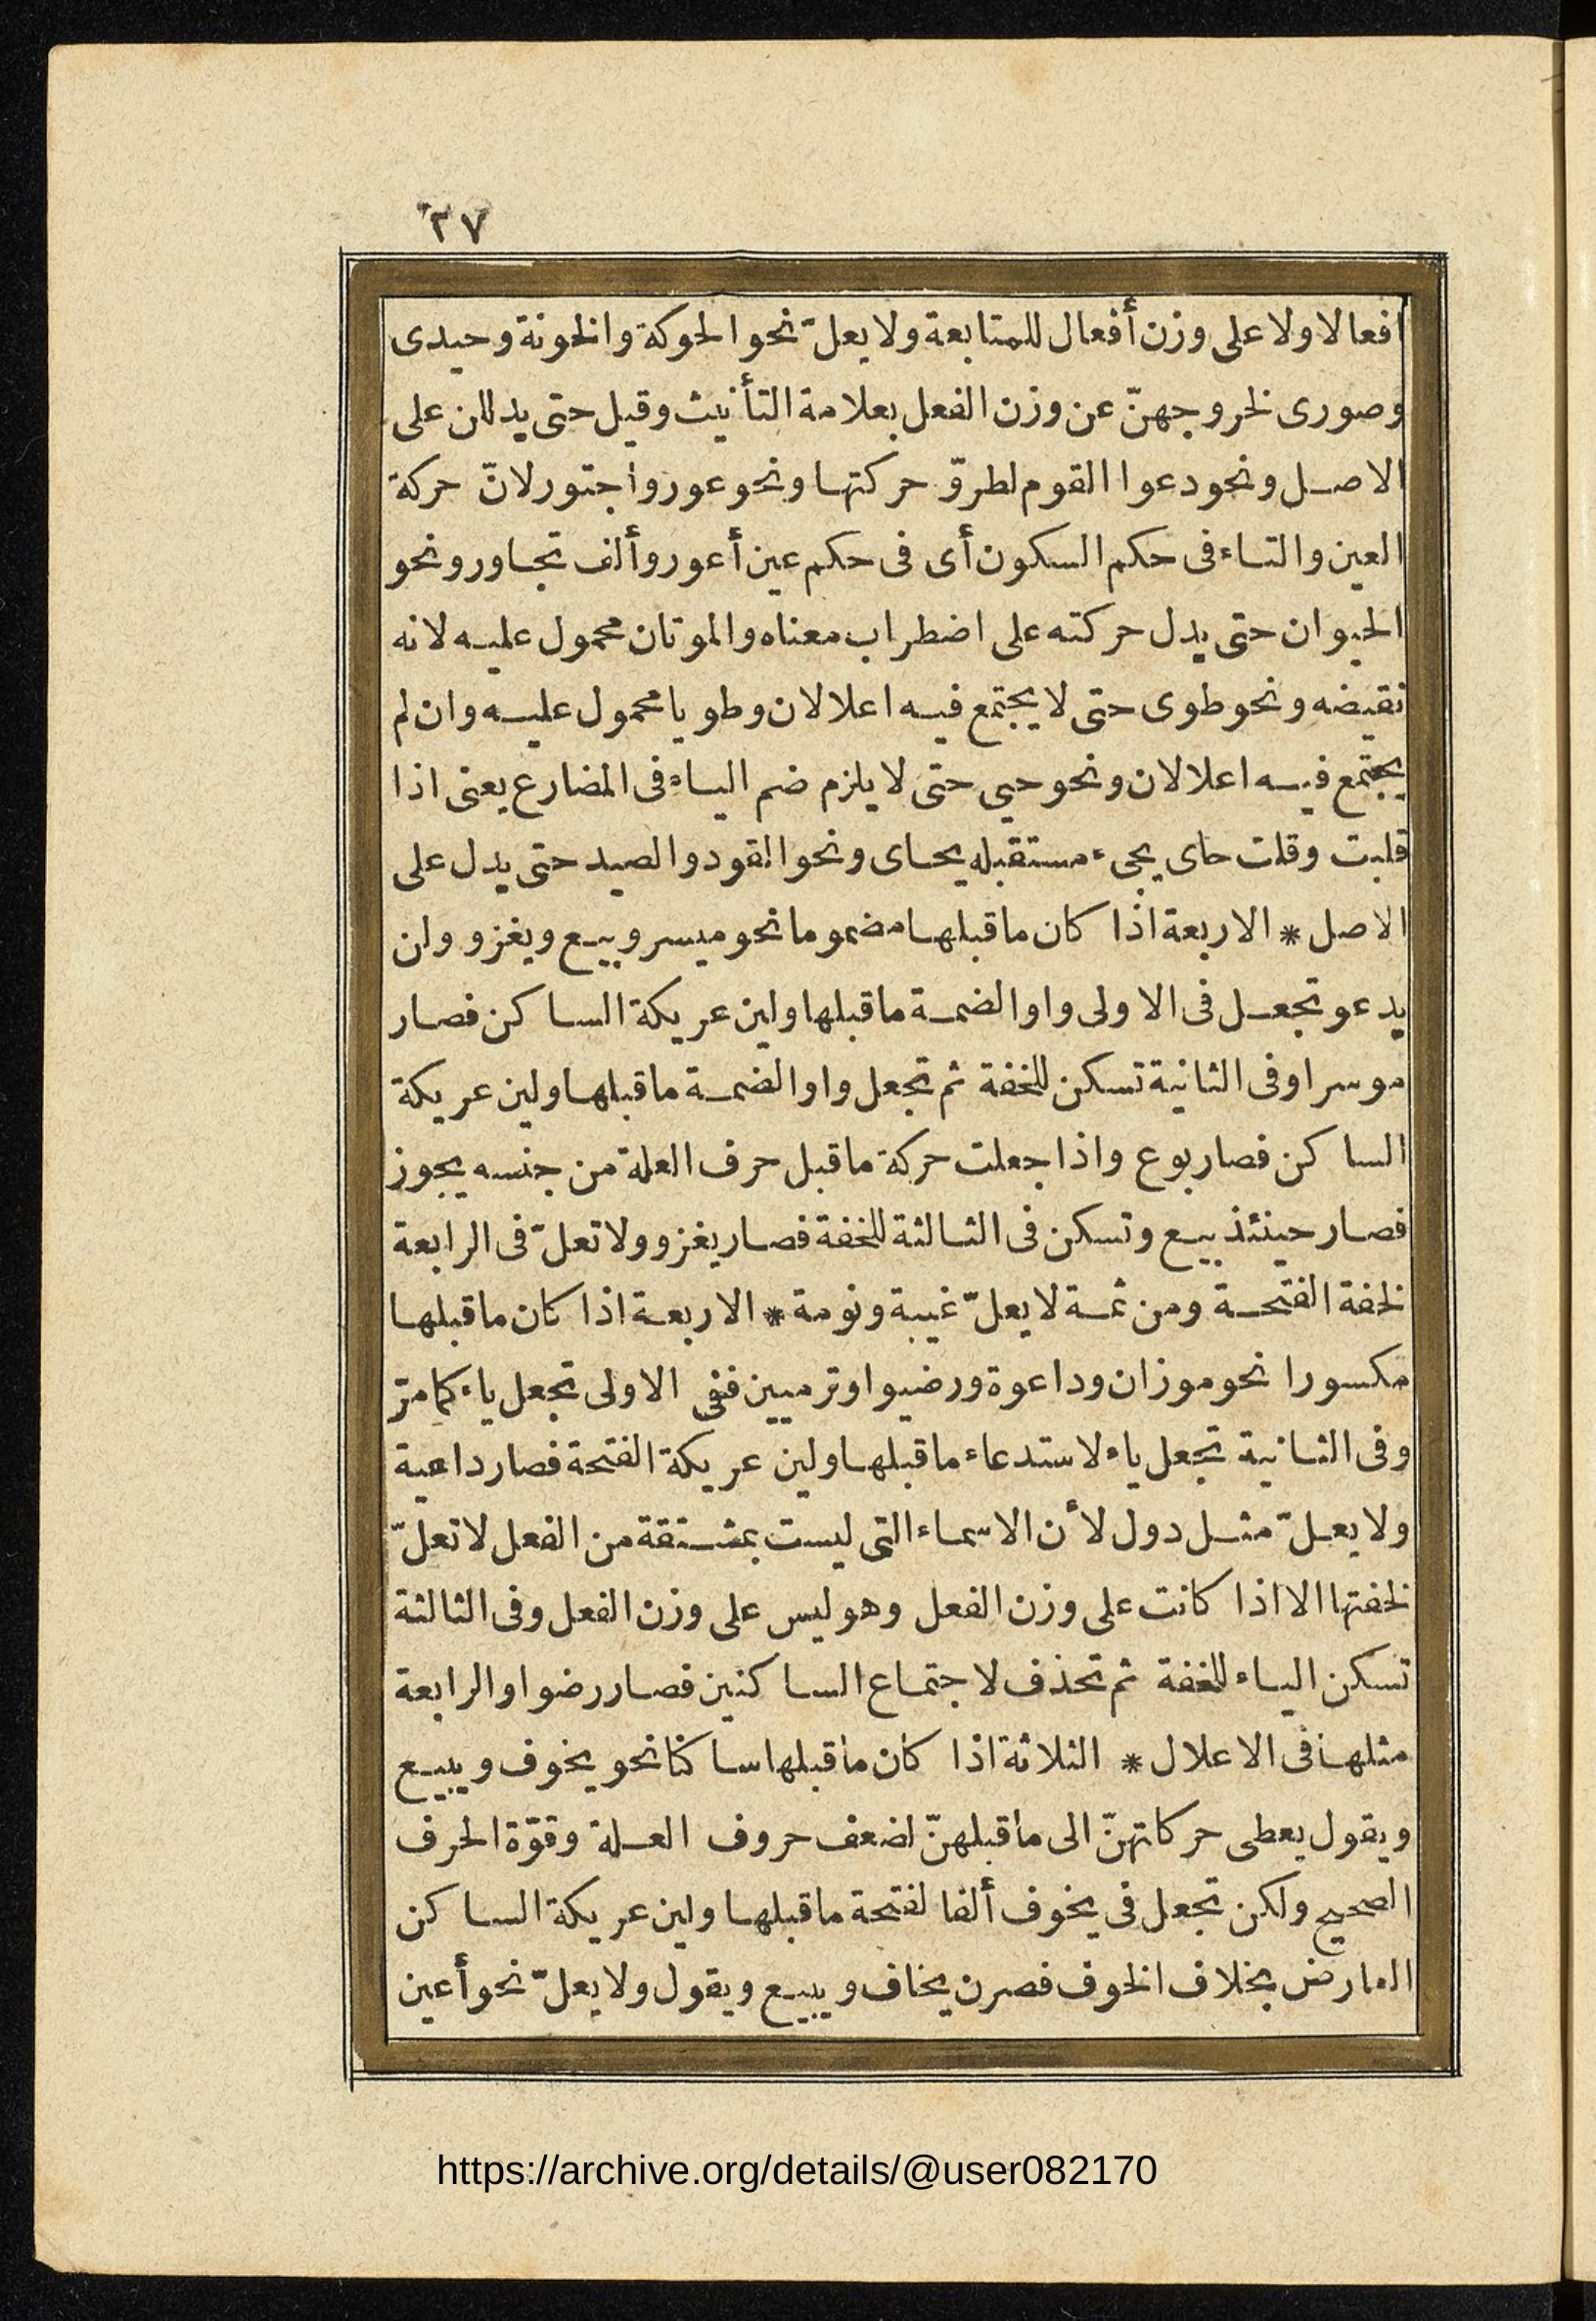 ٣٧
افعالا ولا على وزن أفعال للمتابعة ولا يعلّ نحو الحوكة والخونة وحيدى
وصورى لخروجهنّ عن وزن الفعل بعلامة التأنيث وقيل حتى يدللن على
الاصل ونحو دعوا القوم لطروّ حركتها ونحو عور واجتور لانّ حركة
العين والتاء فى حكم السكون أى فى حكم عين أعور وألف تجاور ونحو
الحيوان حتى يدل حركته على اضطراب معناه والموتان محمول عليه لانه
نقيضه ونحو طوى حتى لا يجتمع فيه اعلالان وطويا محمول عليه وان لم
يجتمع فيه اعلالان ونحو حيى حتى لا يلزم ضم الياء فى المضارع يعنى اذا
قلبت وقلت حاى يجىء مستقبله يحاى ونحو القود والصيد حتى يدل على
الاصل * الاربعة اذا كان ما قبلها مضموما نحو ميسر وبيع ويغزو ولن
يدعو تجعل فى الاولى واوا لضمة ما قبلها ولين عريكة الساكن فصار
موسرا وفى الثانية تسكن للخفة ثم تجعل واوا لضمة ما قبلها ولين عريكة
الساكن فصار بوع واذا جعلت حركة ما قبل حرف العلة من جنسه يجوز
فصار حينئذ بيع وتسكن فى الثالثة للخفة فصار يغزو ولا تعلّ فى الرابعة
لخفة الفتحة ومن ثمة لا يعلّ غيبة ونومة * الاربعة اذا كان ما قبلها
مكسورا نحو موزان وداعوة ورضيوا وترميين ففى الاولى تجعل ياء كما مرّ
وفى الثانية تجعل ياء لاستدعاء ما قبلها ولين عريكة الفتحة فصار داعية
ولا يعلّ مثل دول لأن الاسماء التى ليست بمشتقة من الفعل لا تعلّ
لخفتها الا اذا كانت على وزن الفعل وهو ليس على وزن الفعل وفى الثالثة
تسكن الياء للخفة ثم تحذف لاجتماع الساكنين فصار رضوا والرابعة
مثلها فى الاعلال * الثلاثة اذا كان ما قبلها ساكنا نحو يخوف ويبيع
ويقول يعطى حركاتهنّ الى ما قبلهنّ لضعف حروف العلة وقوّة الحرف
الصحيح ولكن تجعل فى يخوف ألفا لفتحة ما قبلها ولين عريكة الساكن
العارض بخلاف الخوف فصرن يخاف ويبيع ويقول ولا يعلّ نحو أعين
https://archive.org/details/@user082170